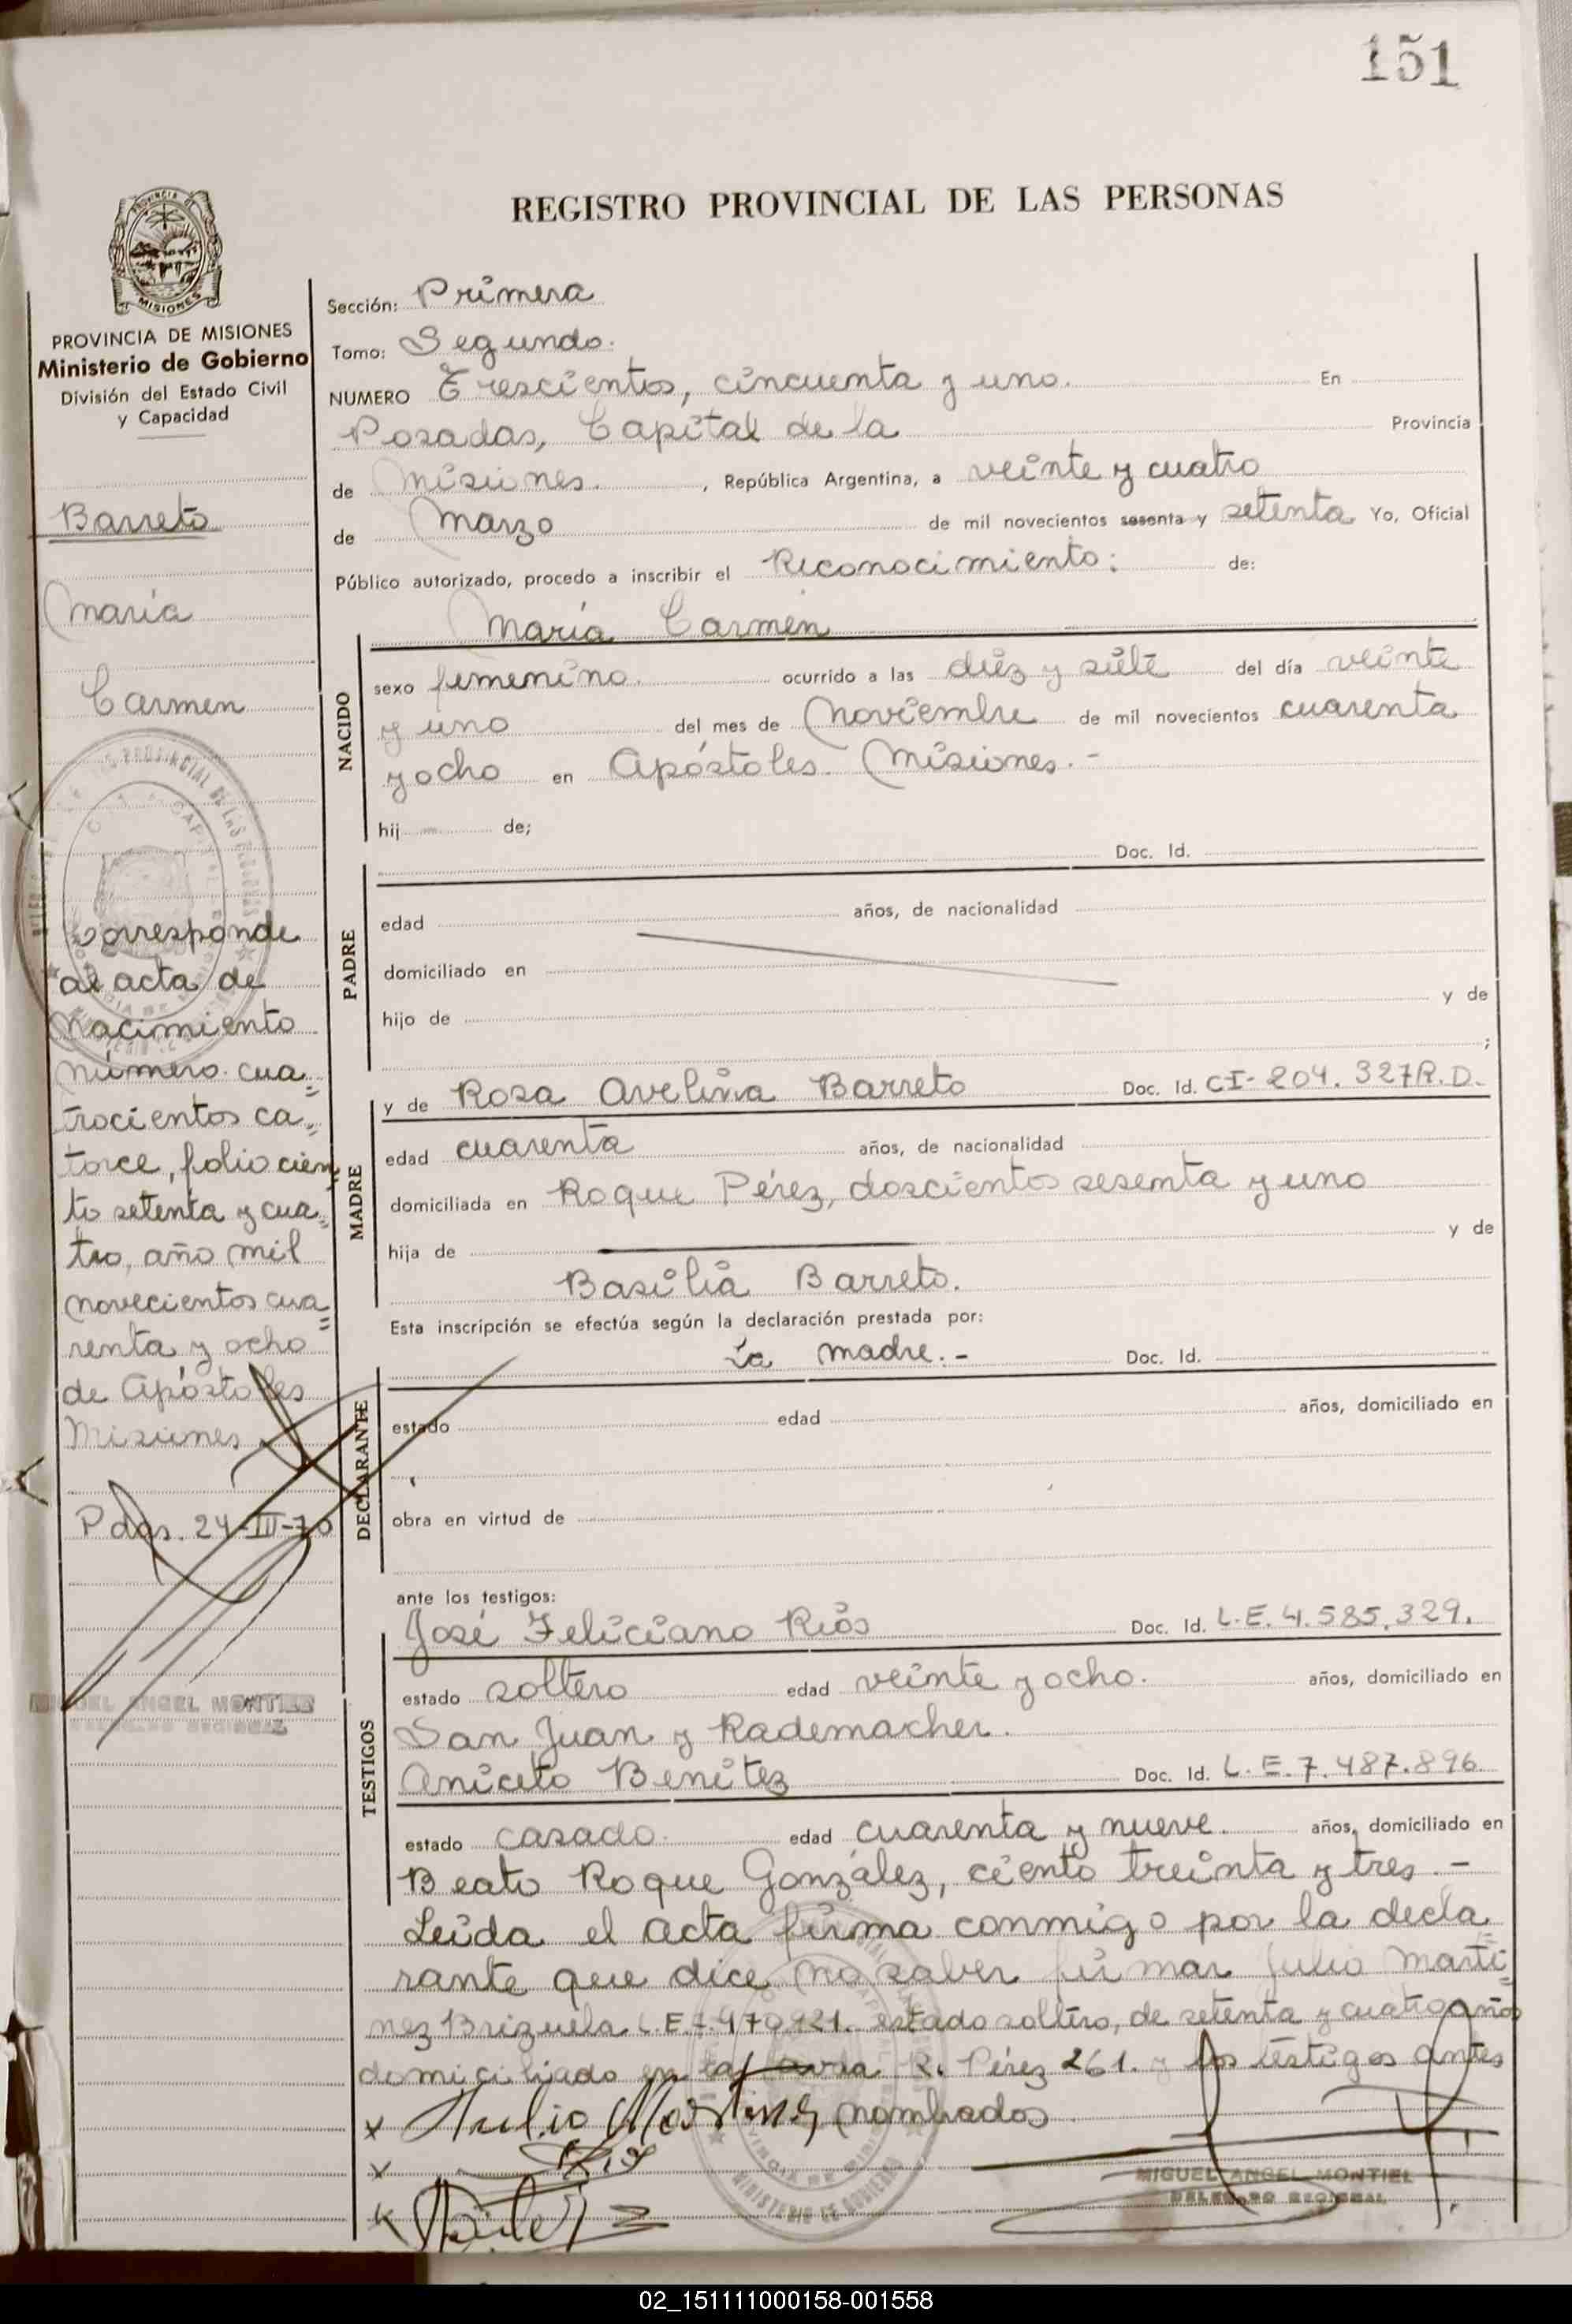 151
REGISTRO PROVINCIAL DE LAS PERSONAS
MISIONES
PROVINCIA DE MISIONES
Ministerio de Gobierno
División del Estado Civil
y Capacidad
Barreto
María
Carmen
Corresponde
al acta de
Nacimiento
número cua=
trocientos ca=
torce, folio cien
to setenta y cua=
tro, año mil
novecientos cua=
renta y ocho
de Apóstoles
Misiones
Pdas. 24-III-70
MIGUEL ANGEL MONTIEL
DELEGADO REGIONAL
Sección: Primera
Tomo: Segundo.
NUMERO Trescientos, cincuenta y uno. En
Posadas, Capital de la Provincia
de Misiones. , República Argentina, a veinte y cuatro
de Marzo de mil novecientos sesenta y setenta Yo, Oficial
Público autorizado, procedo a inscribir el Reconocimiento: de:
María Carmen
NACIDO
sexo femenino. ocurrido a las diéz y siéte del día veinte
y uno del mes de Noviembre de mil novecientos cuarenta
y ocho en Apóstoles. Misiones. -
hij de;
Doc. Id.
PADRE
edad años, de nacionalidad
domiciliado en
hijo de y de
;
y de Rosa Avelina Barreto Doc. Id. CI-204.327R.D.
MADRE
edad cuarenta años, de nacionalidad
domiciliada en Roque Pérez, doscientos sesenta y uno
hija de y de
Basilia Barreto.
Esta inscripción se efectúa según la declaración prestada por:
La madre. - Doc. Id.
DECLARANTE
estado edad años, domiciliado en
obra en virtud de
ante los testigos:
José Feliciano Ríos Doc. Id. L.E. 4.585.329.
TESTIGOS
estado soltero edad veinte y ocho. años, domiciliado en
San Juan y Rademacher.
Aniceto Benítez Doc. Id. L.E. 7.487.896
estado casado. edad cuarenta y nueve. años, domiciliado en
Beato Roque González, ciento treinta y tres. -
Leída el acta firma conmigo por la decla
rante que dice no saber firmar Julio Martí=
nez Brizuela L.E. 7.470.921. estado soltero, de setenta y cuatro años
domiciliado en R. Pérez 261. y los testigos antes
x Julio Martinez nombrados
x
x
MIGUEL ANGEL MONTIEL
DELEGADO REGIONAL
MINISTERIO DE GOBIERNO
02_151111000158-001558